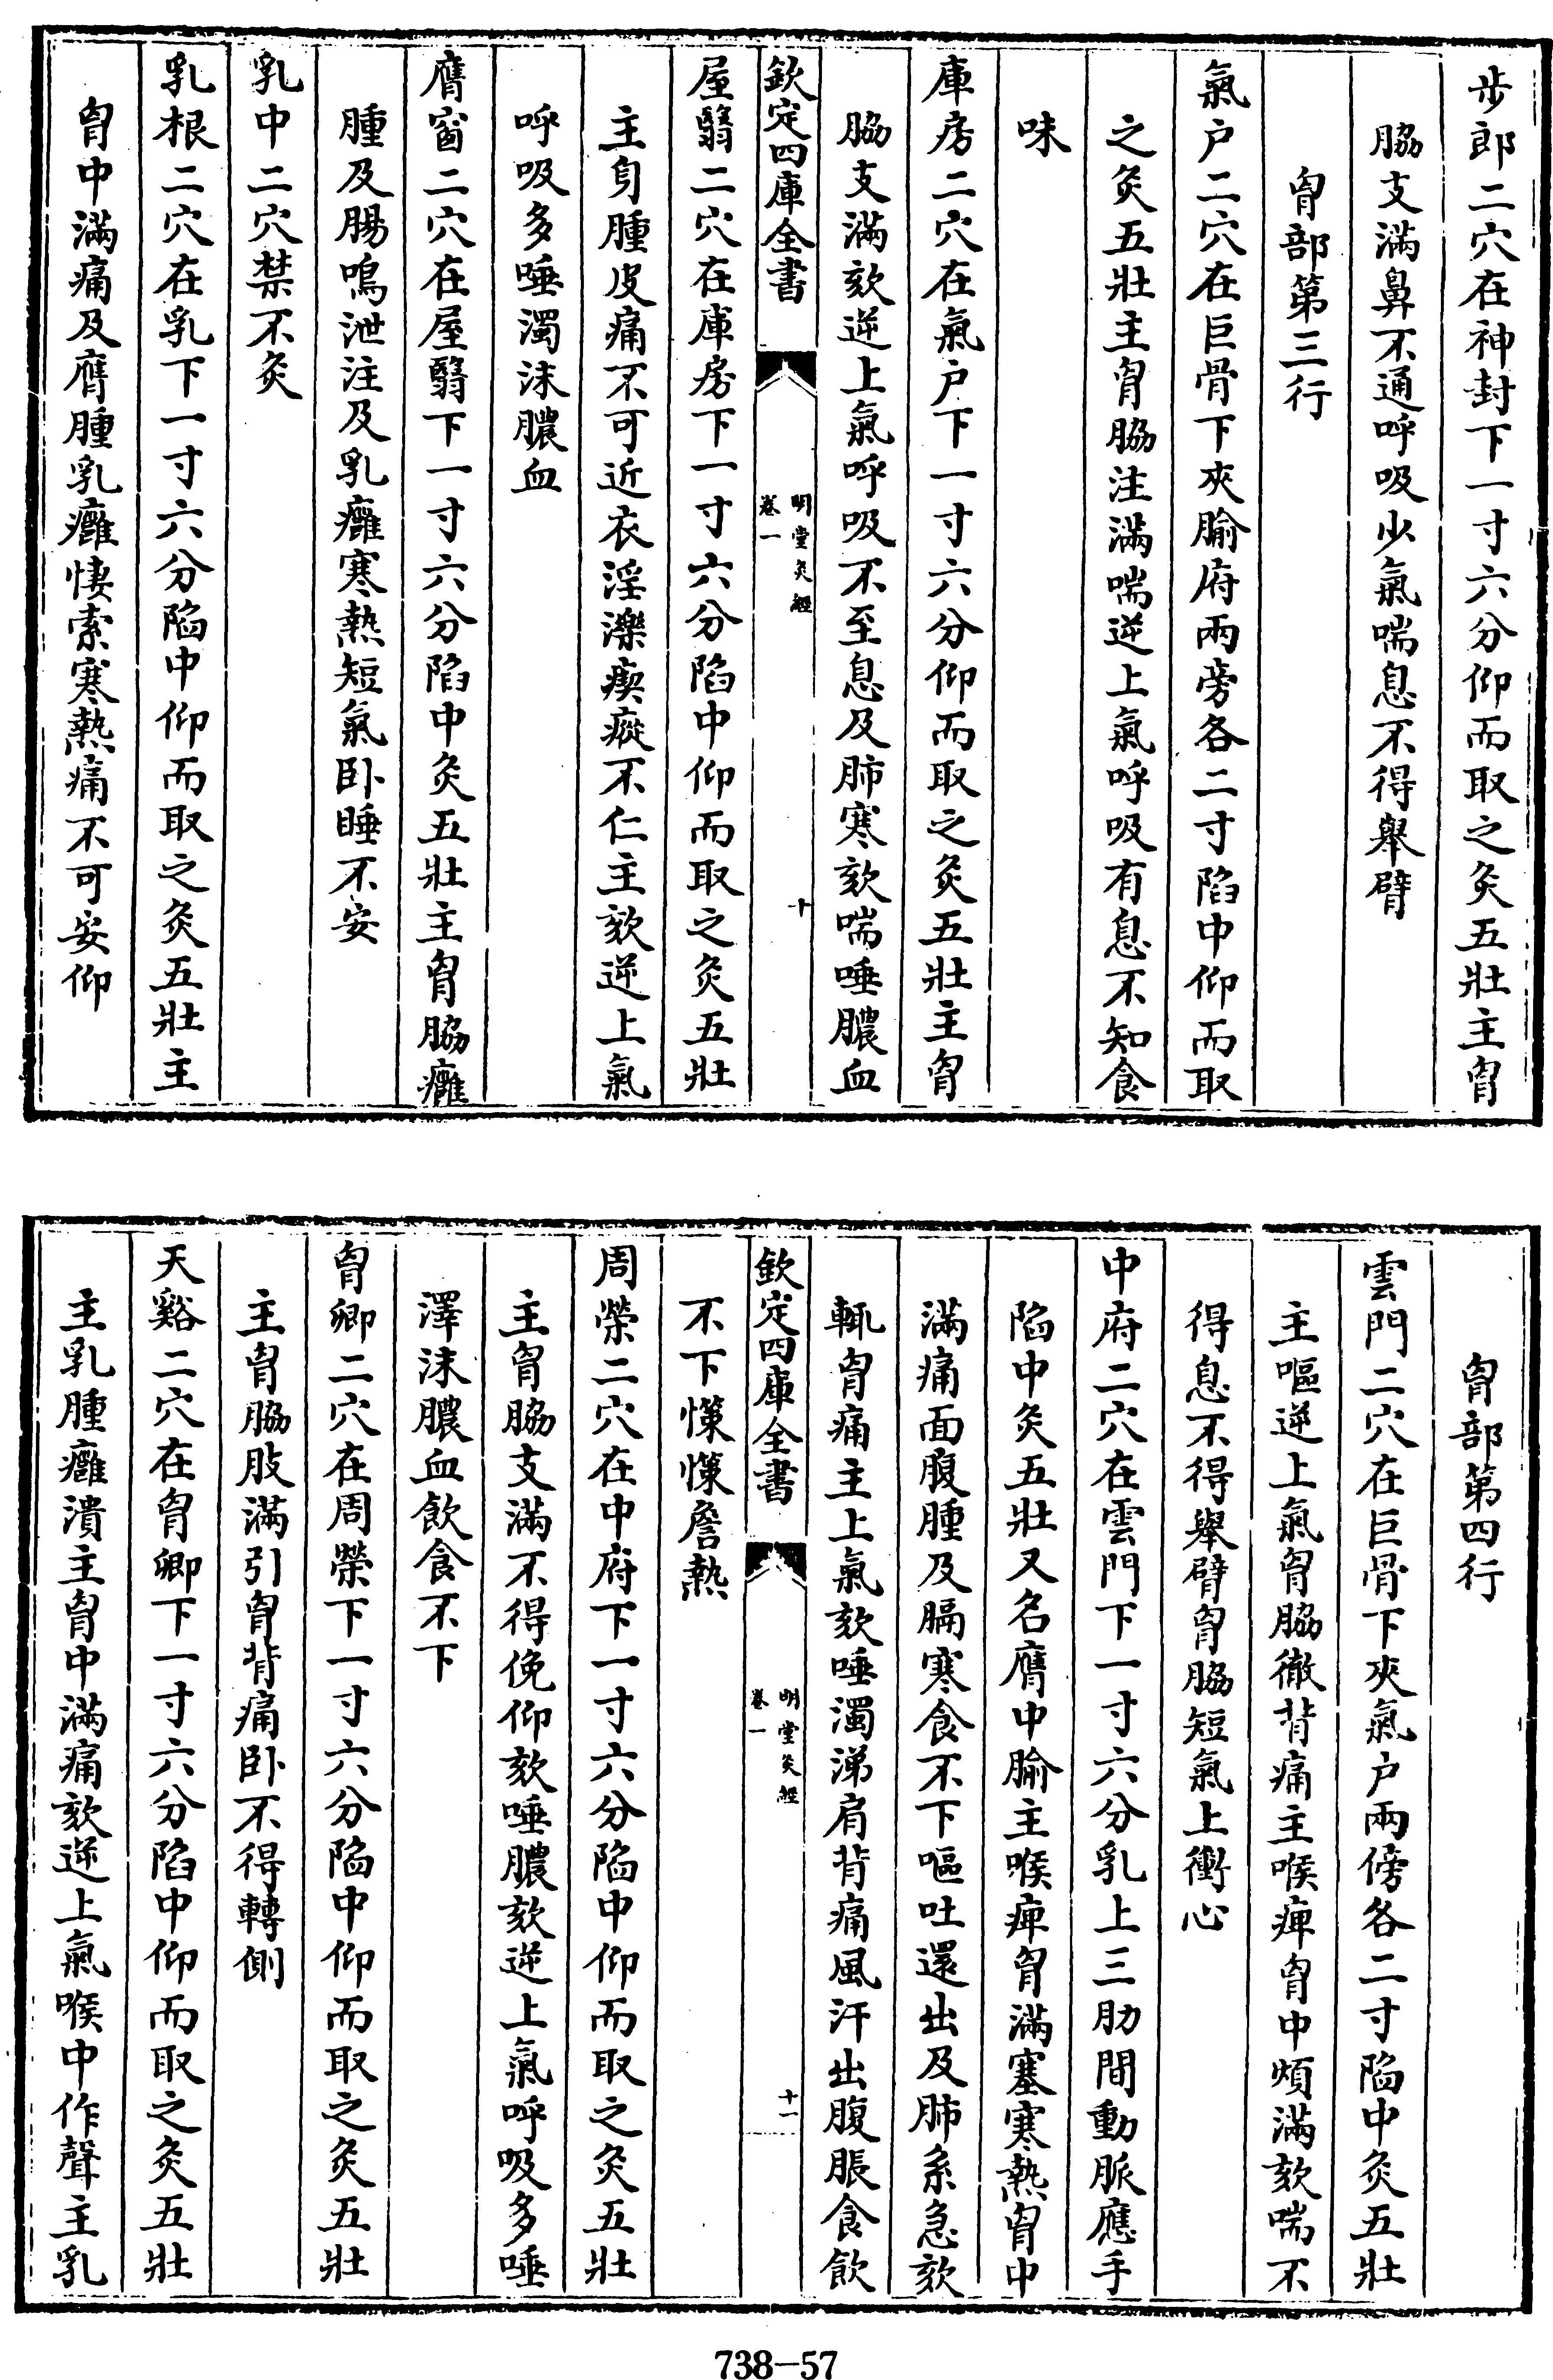 步郎二穴在神封下一寸六分仰而取之灸五壯主胷
脇支滿鼻不通呼吸少氣喘息不得舉臂
胷部第三行
氣户二穴在巨骨下夾腧府兩旁各二寸陷中仰而取
之灸五壯主胷脇注滿喘逆上氣呼吸有息不知食
味
庫房二穴在氣户下一寸六分仰而取之灸五壯主胷
脇支滿欬逆上氣呼吸不至息及肺寒欬喘唾膿血
欽定四庫全書
明堂灸經
卷一
十
屋翳二穴在庫房下一寸六分陷中仰而取之灸五壯
主身腫皮痛不可近衣淫濼瘈瘲不仁主欬逆上氣
呼吸多唾濁沫膿血
膺窗二穴在屋翳下一寸六分陷中灸五壯主胷脇癰
腫及腸鳴泄注及乳癰寒熱短氣卧睡不安
乳中二穴禁不灸
乳根二穴在乳下一寸六分陷中仰而取之灸五壯主
胷中滿痛及膺腫乳癰悽索寒熱痛不可安仰
胷部第四行
雲門二穴在巨骨下夾氣户兩傍各二寸陷中灸五壯
主嘔逆上氣胷脇徹背痛主喉痺胷中煩滿欬喘不
得息不得舉臂胷脇短氣上衝心
中府二穴在雲門下一寸六分乳上三肋間動脈應手
陷中灸五壯又名膺中腧主喉痺胷滿塞寒熱胷中
滿痛面腹腫及膈寒食不下嘔吐還出及肺系急欬
輒胷痛主上氣欬唾濁涕肩背痛風汗出腹脹食飲
欽定四庫全書
明堂灸經
卷一
十一
不下慄慄詹熱
周榮二穴在中府下一寸六分陷中仰而取之灸五壯
主胷脇支滿不得俛仰欬唾膿欬逆上氣呼吸多唾
澤沫膿血飲食不下
胷卿二穴在周榮下一寸六分陷中仰而取之灸五壯
主胷脇肢滿引胷背痛卧不得轉側
天谿二穴在胷卿下一寸六分陷中仰而取之灸五壯
主乳腫癰潰主胷中滿痛欬逆上氣喉中作聲主乳
738-57